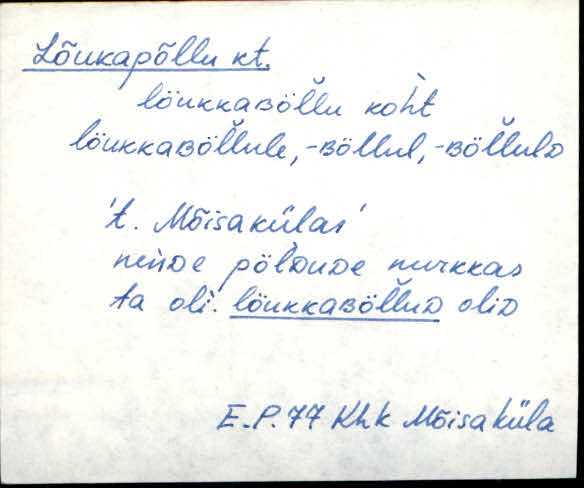 Lõukapõllu kt.
löukkaʙöl̆lu koh̀t
löukkaʙöl̆lule, -ʙöl̆lul, -ʙöl̆lulᴅ
't. Mõisakülas'
neǹde pölᴅuᴅe nurkkas
ta olì. löukkaʙöl̆luᴅ oliᴅ
E.P.77 Khk Mõisaküla